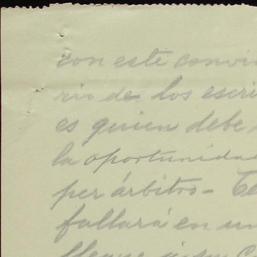 con este convi
rio de los escri
es quien debe
la oportunidad
per árbitro - Te
fallará en un
llegue